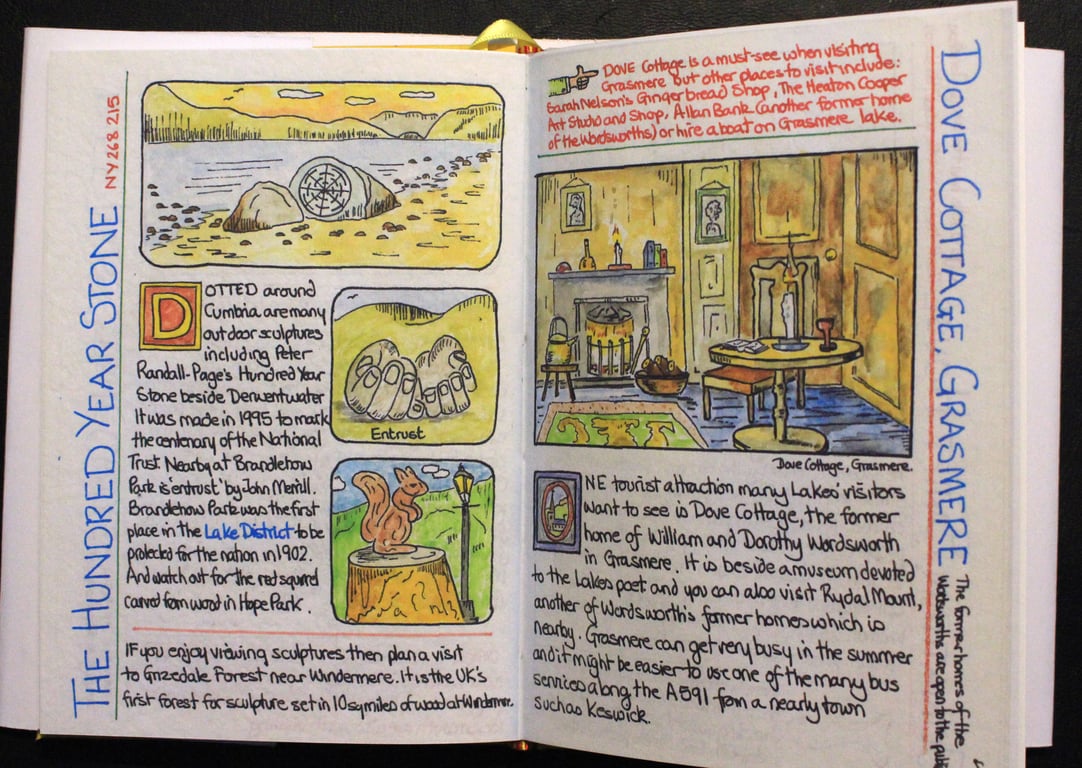 THE HUNDRED YEAR STONE NY 268 215
DOTTED around
Cumbria are many
outdoor sculptures
including Peter
Randall-Page's Hundred Year
Stone beside Derwentwater
It was made in 1995 to mark
the centenary of the National
Trust Nearby at Brandlehow
Park is 'entrust' by John Merrill.
Brandlehow Park was the first
place in the Lake District to be
protected for the nation in 1902.
And watch out for the red squirrel
carved from wood in Hope Park.
Entrust
IF you enjoy viewing sculptures then plan a visit
to Grizedale Forest near Windermere. It is the UK's
first forest for sculpture set in 10 sq miles of wood at Windermere.
DOVE Cottage is a must-see when visiting
Grasmere but other places to visit include:
Sarah Nelson's Gingerbread Shop, The Heaton Cooper
Art Studio and Shop, Allan Bank (another former home
of the Wordsworths) or hire a boat on Grasmere lake.
Dove Cottage, Grasmere.
ONE tourist attraction many Lakes' visitors
want to see is Dove Cottage, the former
home of William and Dorothy Wordsworth
in Grasmere. It is beside a museum devoted
to the Lakes poet and you can also visit Rydal Mount,
another of Wordsworth's former homes which is
nearby. Grasmere can get very busy in the summer
and it might be easier to use one of the many bus
services along the A591 from a nearby town
such as Keswick.
DOVE COTTAGE, GRASMERE
The former homes of the
Wordsworths are open to the